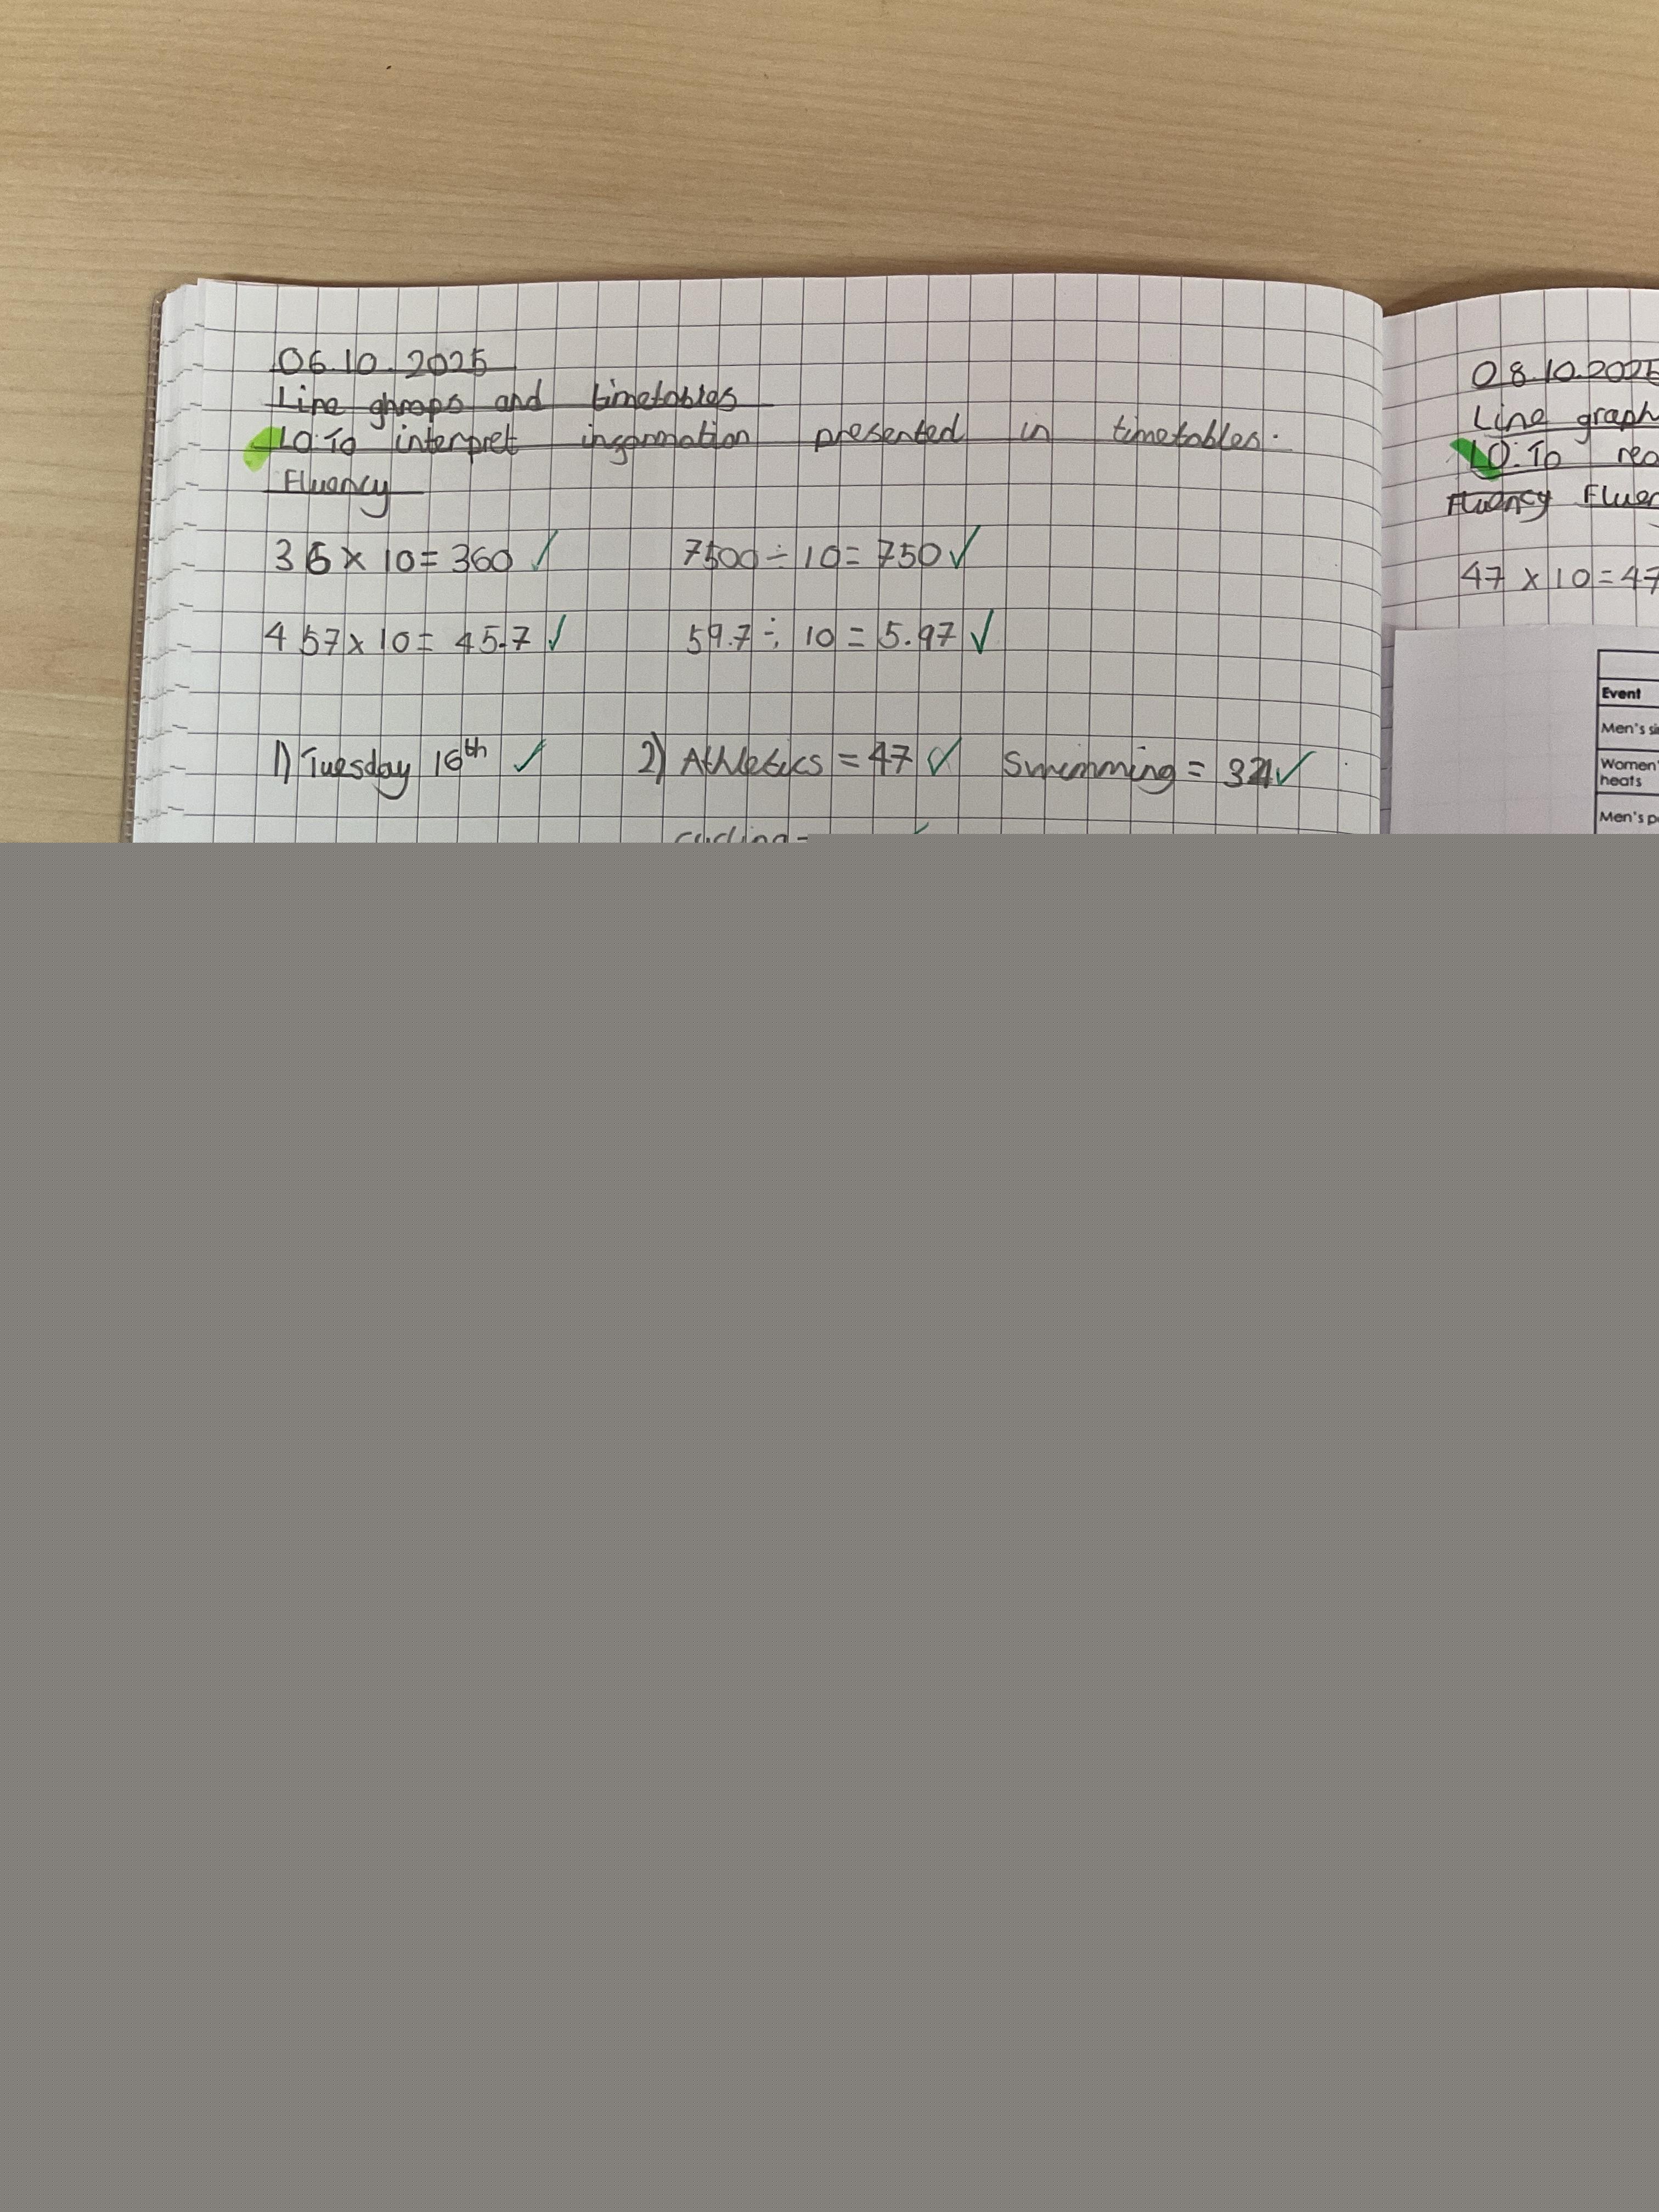 06.10.2025
Line ghraps and timetables
LO:To interpret insormation presented in timetables.
Fluency
36 x 10 = 360 ✓ 7500 ÷ 10 = 750 ✓
457 x 10 = 45.7 ✓ 59.7 ÷ 10 = 5.97 ✓
1) Tuesday 16th ✓ 2) Athletics = 47 ✓ Swimming = ✓
cycling =
08.10.2025
Line graph
LO:To rea
Fluency Fluen
47 x 10 = 47
Event
Men's si
Women'
heats
Men's p